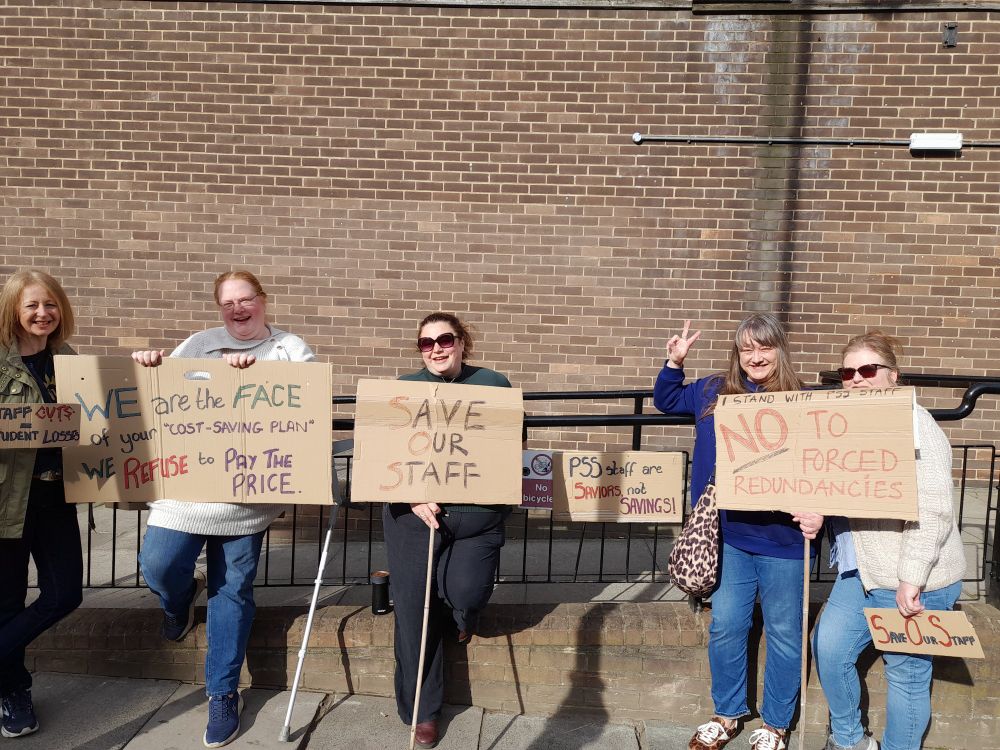 STAFF CUTS
STUDENT LOSSES
WE are the FACE
of your "COST-SAVING PLAN"
WE REFUSE to PAY THE
PRICE.
SAVE
OUR
STAFF
No
bicycles
PSS staff are
SAVIORS, not
SAVINGS!
I STAND WITH PSS STAFF
NO TO
FORCED
REDUNDANCIES
SAVE OUR STAFF